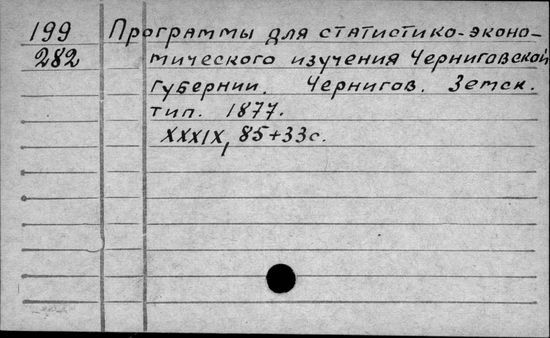 199 Программы для статистико-эконо-
282 мического изучения Черниговской
губернии. Чернигов. Земск.
тип. 1877.
XXXIX, 85+33с.